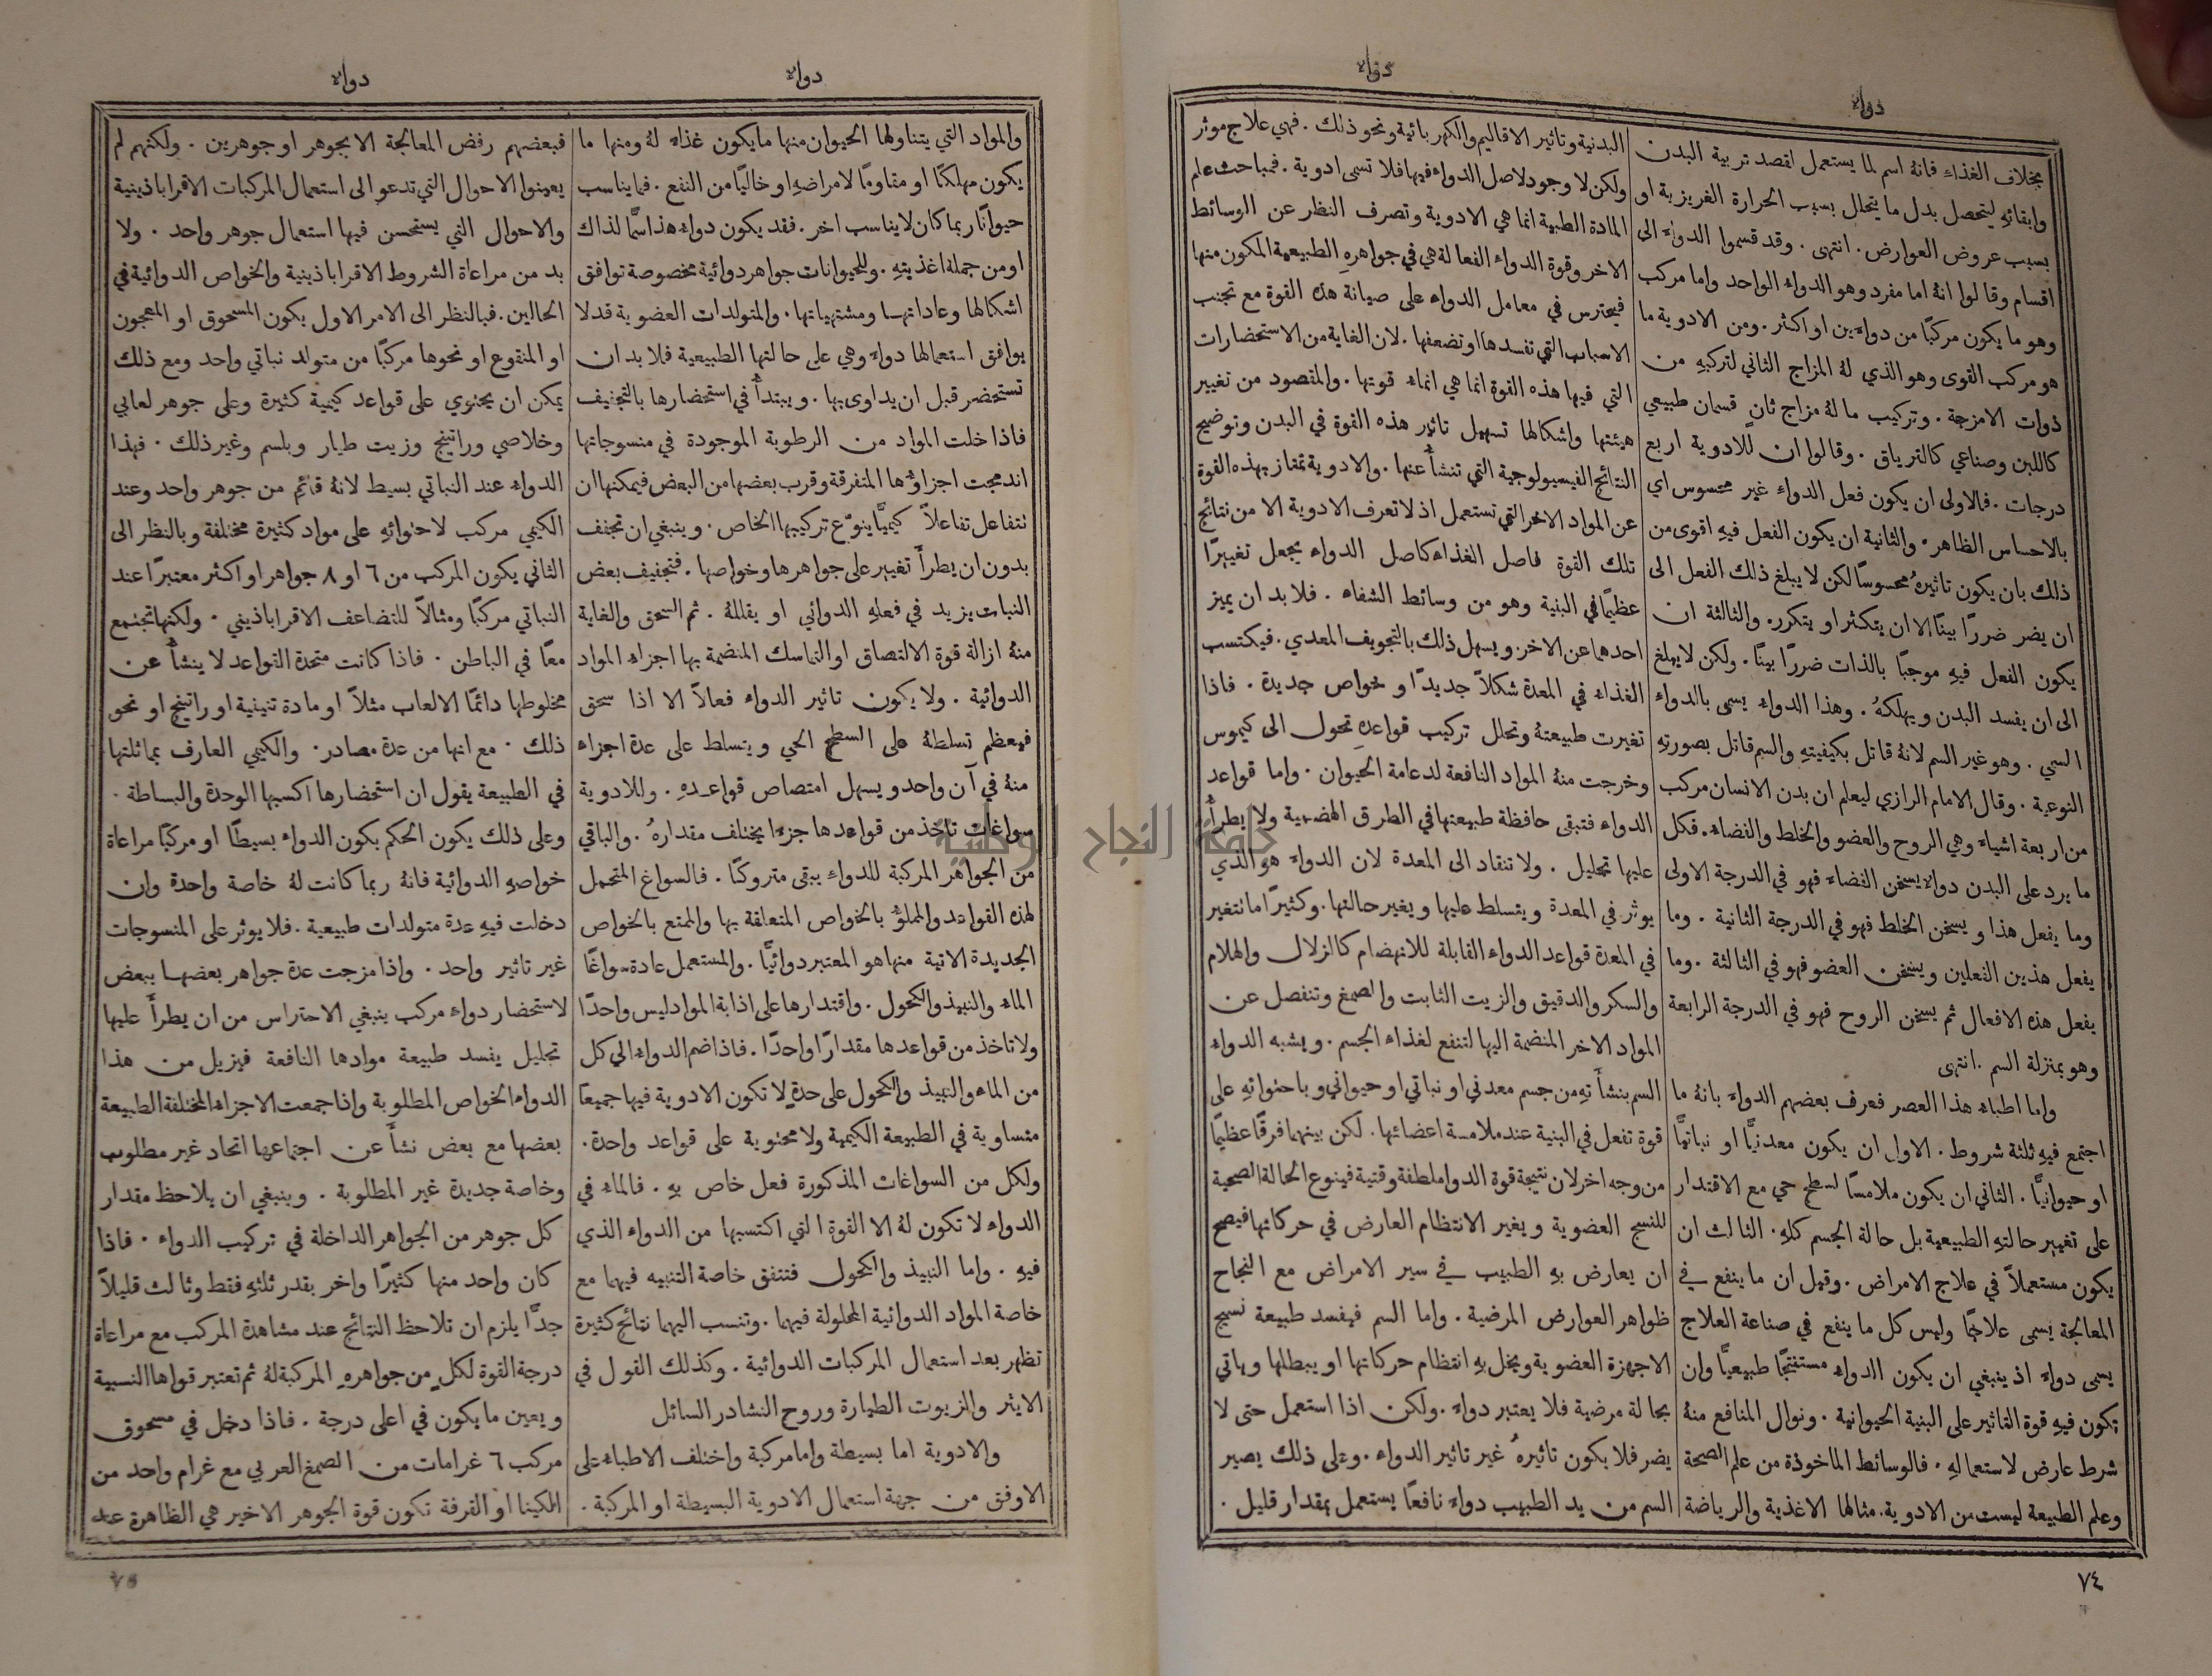 دواء
دواء
بخلاف الغذاء فانهُ اسم لما يستعمل لقصد تربية البدن
وابقائهِ ليتحصل بدل ما يتحلل بسبب الحرارة الغريزية او
بسبب عروض العوارض . انتهى . وقد قسموا الدواء الى
اقسام وقالوا انهُ اما مفرد وهو الدواء الواحد واما مركب
وهو ما يكون مركبًا من دواءين او اكثر . ومن الادوية ما
هو مركب القوى وهو الذي لهُ المزاج الثاني لتركبهِ من
ذوات الامزجة . وتركيب ما لهُ مزاج ثانٍ قسمان طبيعي
كاللبن وصناعي كالترياق . وقالوا ان للادوية اربع
درجات . فالاولى ان يكون فعل الدواء غير محسوس اي
بالاحساس الظاهر . والثانية ان يكون الفعل فيهِ اقوى من
ذلك بان يكون تاثيرهُ محسوسًا لكن لا يبلغ ذلك الفعل الى
ان يضر ضررًا بينًا الا ان يتكثر او يتكرر. والثالثة ان
يكون الفعل فيهِ موجبًا بالذات ضررًا بينًا . ولكن لا يبلغ
الى ان يفسد البدن ويهلكهُ . وهذا الدواء يسمى بالدواء
السمي . وهو غير السم لانهُ قاتل بكيفيتهِ والسم قاتل بصورتهِ
النوعية . وقال الامام الرازي ليعلم ان بدن الانسان مركب
من اربعة اشياء وهي الروح والعضو والخلط والفضاء . فكل
ما يرد على البدن دواء يسخن الفضاء فهو في الدرجة الاولى
وما يفعل هذا ويسخن الخلط فهو في الدرجة الثانية . وما
يفعل هذين الفعلين ويسخن العضو فهو في الثالثة . وما
يفعل هذه الافعال ثم يسخن الروح فهو في الدرجة الرابعة
وهو بمنزلة السم . انتهى
واما اطباء هذا العصر فعرف بعضهم الدواء بانهُ ما
اجتمع فيهِ ثلثة شروط . الاول ان يكون معدنيًّا او نباتيًّا
او حيوانيًّا . الثاني ان يكون ملامسًا لسطح حي مع الاقتدار
على تغيير حالتهِ الطبيعية بل حالة الجسم كلهِ . الثالث ان
يكون مستعملاً في علاج الامراض . وقيل ان ما ينفع في
المعالجة يسمى علاجًا وليس كل ما ينفع في صناعة العلاج
يسمى دواء اذ ينبغي ان يكون الدواء مستنتجًا طبيعيًّا وان
تكون فيهِ قوة التاثير على البنية الحيوانية . ونوال المنافع منهُ
شرط عارض لاستعمالهِ . فالوسائط الماخوذة من علم الصحة
وعلم الطبيعة ليست من الادوية. مثالها الاغذية والرياضة
البدنية وتاثير الاقاليم والكهربائية ونحو ذلك . فهي علاج موثر
ولكن لا وجود لاصل الدواء فيها فلا تسمى ادوية . فمباحث علم
المادة الطبية انما هي الادوية وتصرف النظر عن الوسائط
الاخر وقوة الدواء الفعالة هي في جواهرهِ الطبيعية المكون منها
فيحترس في معامل الدواء على صيانة هذه القوة مع تجنب
الاسباب التي تفسدها او تضعفها . لان الغاية من الاستحضارات
التي فيها هذه القوة انما هي انماء قوتها . والمقصود من تغيير
هيئتها واشكالها تسهيل تاثير هذه القوة في البدن وتوضيح
النتائج الفيسيولوجية التي تنشأ عنها . والادوية تمتاز بهذه القوة
عن المواد الاخر التي تستعمل اذ لا تعرف الادوية الا من نتائج
تلك القوة فاصل الغذاء كاصل الدواء يجعل تغييرًا
عظيمًا في البنية وهو من وسائط الشفاء . فلا بد ان يميز
احدهما عن الاخر. ويسهل ذلك بالتجويف المعدي . فيكتسب
الغذاء في المعدة شكلاً جديدًا وخواص جديدة . فاذا
تغيرت طبيعتهُ وتحلل تركيب قواعدهِ تحول الى كيموس
وخرجت منهُ المواد النافعة لدعامة الحيوان . واما قواعد
الدواء فتبقى حافظة طبيعتها في الطرق الهضمية ولا يطرأ
عليها تحليل . ولا تنقاد الى المعدة لان الدواء هو الذي
يوثر في المعدة ويتسلط عليها ويغير حالتها . وكثيرًا ما تتغير
في المعدة قواعد الدواء القابلة للانهضام كالزلال والهلام
والسكر والدقيق والزيت الثابت والصمغ وتنفصل عن
المواد الاخر المنضمة اليها لتنفع لغذاء الجسم . ويشبه الدواء
السم بنشأتهِ من جسم معدني او نباتي او حيواني وباحتوائهِ على
قوة تفعل في البنية عند ملامسة اعضائها . لكن بينهما فرقًا عظيمًا
من وجه اخر لان نتيجة قوة الدوا ملطفة وقتية فينوع الحالة الصحية
للنسج العضوية ويغير الانتظام العارض في حركاتها فيصح
ان يعارض بهِ الطبيب في سير الامراض مع النجاح
ظواهر العوارض المرضية . واما السم فيفسد طبيعة نسيج
الاجهزة العضوية ويخل بهِ انتظام حركاتها او يبطلها وياتي
بحالة مرضية فلا يعتبر دواء . ولكن اذا استعمل حتى لا
يضر فلا يكون تاثيرهُ غير تاثير الدواء . وعلى ذلك يصير
السم من يد الطبيب دواء نافعًا يستعمل بمقدار قليل .
٧٤
دواء
دواء
والمواد التي يتناولها الحيوان منها ما يكون غذاء لهُ ومنها ما
يكون مهلكًا او مقاومًا لامراضهِ او خاليًا من النفع . فما يناسب
حيوانًا ربما كان لا يناسب اخر . فقد يكون دواء هذا سمًّا لذاك
او من جملة اغذيتهِ . وللحيوانات جواهر دوائية مخصوصة توافق
اشكالها وعاداتها ومشتهياتها . والمتولدات العضوية قد لا
يوافق استعمالها دواء وهي على حالتها الطبيعية فلا بد ان
تستحضر قبل ان يداوى بها . ويبتدأ في استحضارها بالتجفيف
فاذا خلت المواد من الرطوبة الموجودة في منسوجاتها
اندمجت اجزاؤها المتفرقة وقرب بعضها من البعض فيمكنها ان
تتفاعل تفاعلاً كيميًّا ينوّع تركيبها الخاص . وينبغي ان تجفف
بدون ان يطرأ تغيير على جواهرها وخواصها . فتجفيف بعض
النبات يزيد في فعلهِ الدوائي او يقللهُ . ثم السحق والغاية
منهُ ازالة قوة الالتصاق او التماسك المنضمة بها اجزاء المواد
الدوائية . ولا يكون تاثير الدواء فعالاً الا اذا سحق
فيعظم تسلطهُ على السطح الحي ويتسلط على عدة اجزاء
منهُ في آن واحد ويسهل امتصاص قواعدهِ . وللادوية
سواغات تاخذ من قواعدها جزءا يختلف مقدارهُ . والباقي
من الجواهر المركبة للدواء يبقى متروكًا . فالسواغ المتحمل
لهذه القواعد والمملوّ بالخواص المتعلقة بها والممتع بالخواص
الجديدة الاتية منها هو المعتبر دوائيًّا . والمستعمل عادة سواغًا
الماء والنبيذ والكحول . واقتدارها على اذابة المواد ليس واحدًا
ولا تاخذ من قواعدها مقدارًا واحدًا . فاذا ضم الدواء الى كل
من الماء والنبيذ والكحول على حدةٍ لا تكون الادوية فيها جميعًا
متساوية في الطبيعة الكيمية ولا محتوية على قواعد واحدة .
ولكل من السواغات المذكورة فعل خاص بهِ . فالماء في
الدواء لا تكون لهُ الا القوة التي اكتسبها من الدواء الذي
فيهِ . واما النبيذ والكحول فتتفق خاصة التنبيه فيهما مع
خاصة المواد الدوائية المحلولة فيهما . وتنسب اليهما نتائج كثيرة
تظهر بعد استعمال المركبات الدوائية . وكذلك القول في
الايثر والزيوت الطيارة وروح النشادر السائل
والادوية اما بسيطة واما مركبة واختلف الاطباء على
الاوفق من جهة استعمال الادوية البسيطة او المركبة .
فبعضهم رفض المعالجة الا بجوهر او جوهرين . ولكنهم لم
يعينوا الاحوال التي تدعو الى استعمال المركبات الاقراباذينية
والاحوال التي يستحسن فيها استعمال جوهر واحد . ولا
بد من مراعاة الشروط الاقراباذينية والخواص الدوائية في
الحالين . فبالنظر الى الامر الاول يكون المسحوق او المعجون
او المنقوع او نحوها مركبًا من متولد نباتي واحد ومع ذلك
يمكن ان يحتوي على قواعد كيمية كثيرة وعلى جوهر لعابي
وخلاصي وراتينج وزيت طيار وبلسم وغير ذلك . فهذا
الدواء عند النباتي بسيط لانهُ قائم من جوهر واحد وعند
الكيمي مركب لاحتوائهِ على مواد كثيرة مختلفة وبالنظر الى
الثاني يكون المركب من ٦ او ٨ جواهر او اكثر معتبرًا عند
النباتي مركبًا ومثالاً للتضاعف الاقراباذيني . ولكنها تجتمع
معًا في الباطن . فاذا كانت متحدة القواعد لا ينشأ عن
مخلوطها دائمًا الا لعاب مثلاً او مادة تنينية او راتينج او نحو
ذلك . مع انها من عدة مصادر . والكيمي العارف بماثلتها
في الطبيعة يقول ان استحضارها اكسبها الوحدة والبساطة .
وعلى ذلك يكون الحكم بكون الدواء بسيطًا او مركبًا مراعاة
خواصهِ الدوائية فانهُ ربما كانت لهُ خاصة واحدة وان
دخلت فيهِ عدة متولدات طبيعية . فلا يوثر على المنسوجات
غير تاثير واحد . واذا مزجت عدة جواهر بعضها ببعض
لاستحضار دواء مركب ينبغي الاحتراس من ان يطرأ عليها
تحليل يفسد طبيعة موادها النافعة فيزيل من هذا
الدواء الخواص المطلوبة واذا جمعت الاجزاء المختلفة الطبيعة
بعضها مع بعض نشأ عن اجتماعها اتحاد غير مطلوب
وخاصة جديدة غير المطلوبة . وينبغي ان يلاحظ مقدار
كل جوهر من الجواهر الداخلة في تركيب الدواء . فاذا
كان واحد منها كثيرًا واخر بقدر ثلثهِ فقط وثالث قليلاً
جدًّا يلزم ان تلاحظ النتائج عند مشاهدة المركب مع مراعاة
درجة القوة لكلٍ من جواهرهِ المركبة لهُ ثم تعتبر قواها النسبية
ويعين ما يكون في اعلى درجة . فاذا دخل في مسحوق
مركب ٦ غرامات من الصمغ العربي مع غرام واحد من
الكينا او القرفة تكون قوة الجوهر الاخير هي الظاهرة عند
٧٥
جامعة النجاح الوطنية